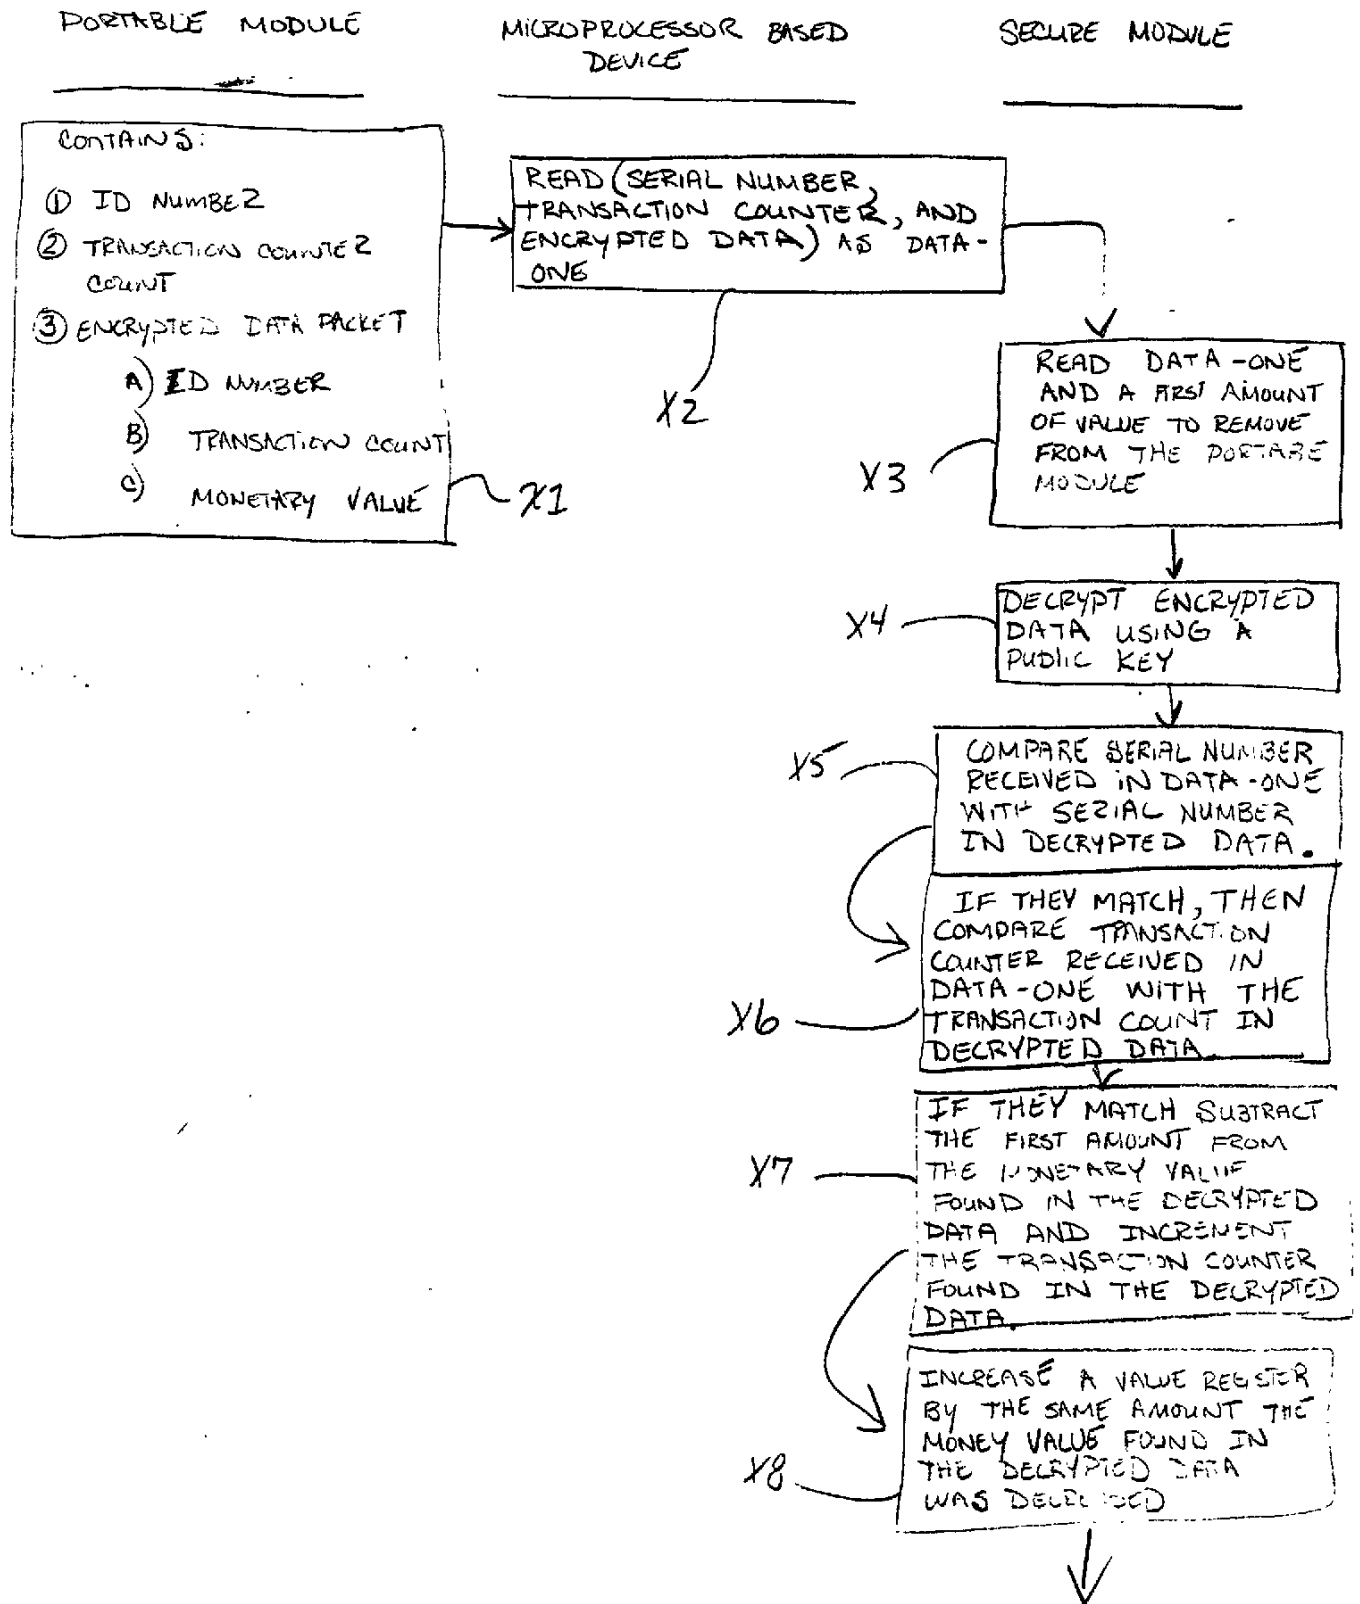 PORTABLE MODULE
MICROPROCESSOR BASED
DEVICE
SECURE MODULE
CONTAINS:
① ID NUMBER
② TRANSACTION COUNTER
COUNT
③ ENCRYPTED DATA PACKET
A) ID NUMBER
B) TRANSACTION COUNT
C) MONETARY VALUE
X1
READ (SERIAL NUMBER,
TRANSACTION COUNTER, AND
ENCRYPTED DATA) AS DATA-
ONE
X2
READ DATA-ONE
AND A FIRST AMOUNT
OF VALUE TO REMOVE
FROM THE PORTABE
MODULE
X3
DECRYPT ENCRYPTED
DATA USING A
PUBLIC KEY
X4
COMPARE SERIAL NUMBER
RECEIVED IN DATA-ONE
WITH SERIAL NUMBER
IN DECRYPTED DATA.
X5
IF THEY MATCH, THEN
COMPARE TRANSACTION
COUNTER RECEIVED IN
DATA-ONE WITH THE
TRANSACTION COUNT IN
DECRYPTED DATA.
X6
IF THEY MATCH SUBTRACT
THE FIRST AMOUNT FROM
THE MONETARY VALUE
FOUND IN THE DECRYPTED
DATA AND INCREMENT
THE TRANSACTION COUNTER
FOUND IN THE DECRYPTED
DATA.
X7
INCREASE A VALUE REGISTER
BY THE SAME AMOUNT THE
MONEY VALUE FOUND IN
THE DECRYPTED DATA
WAS
X8